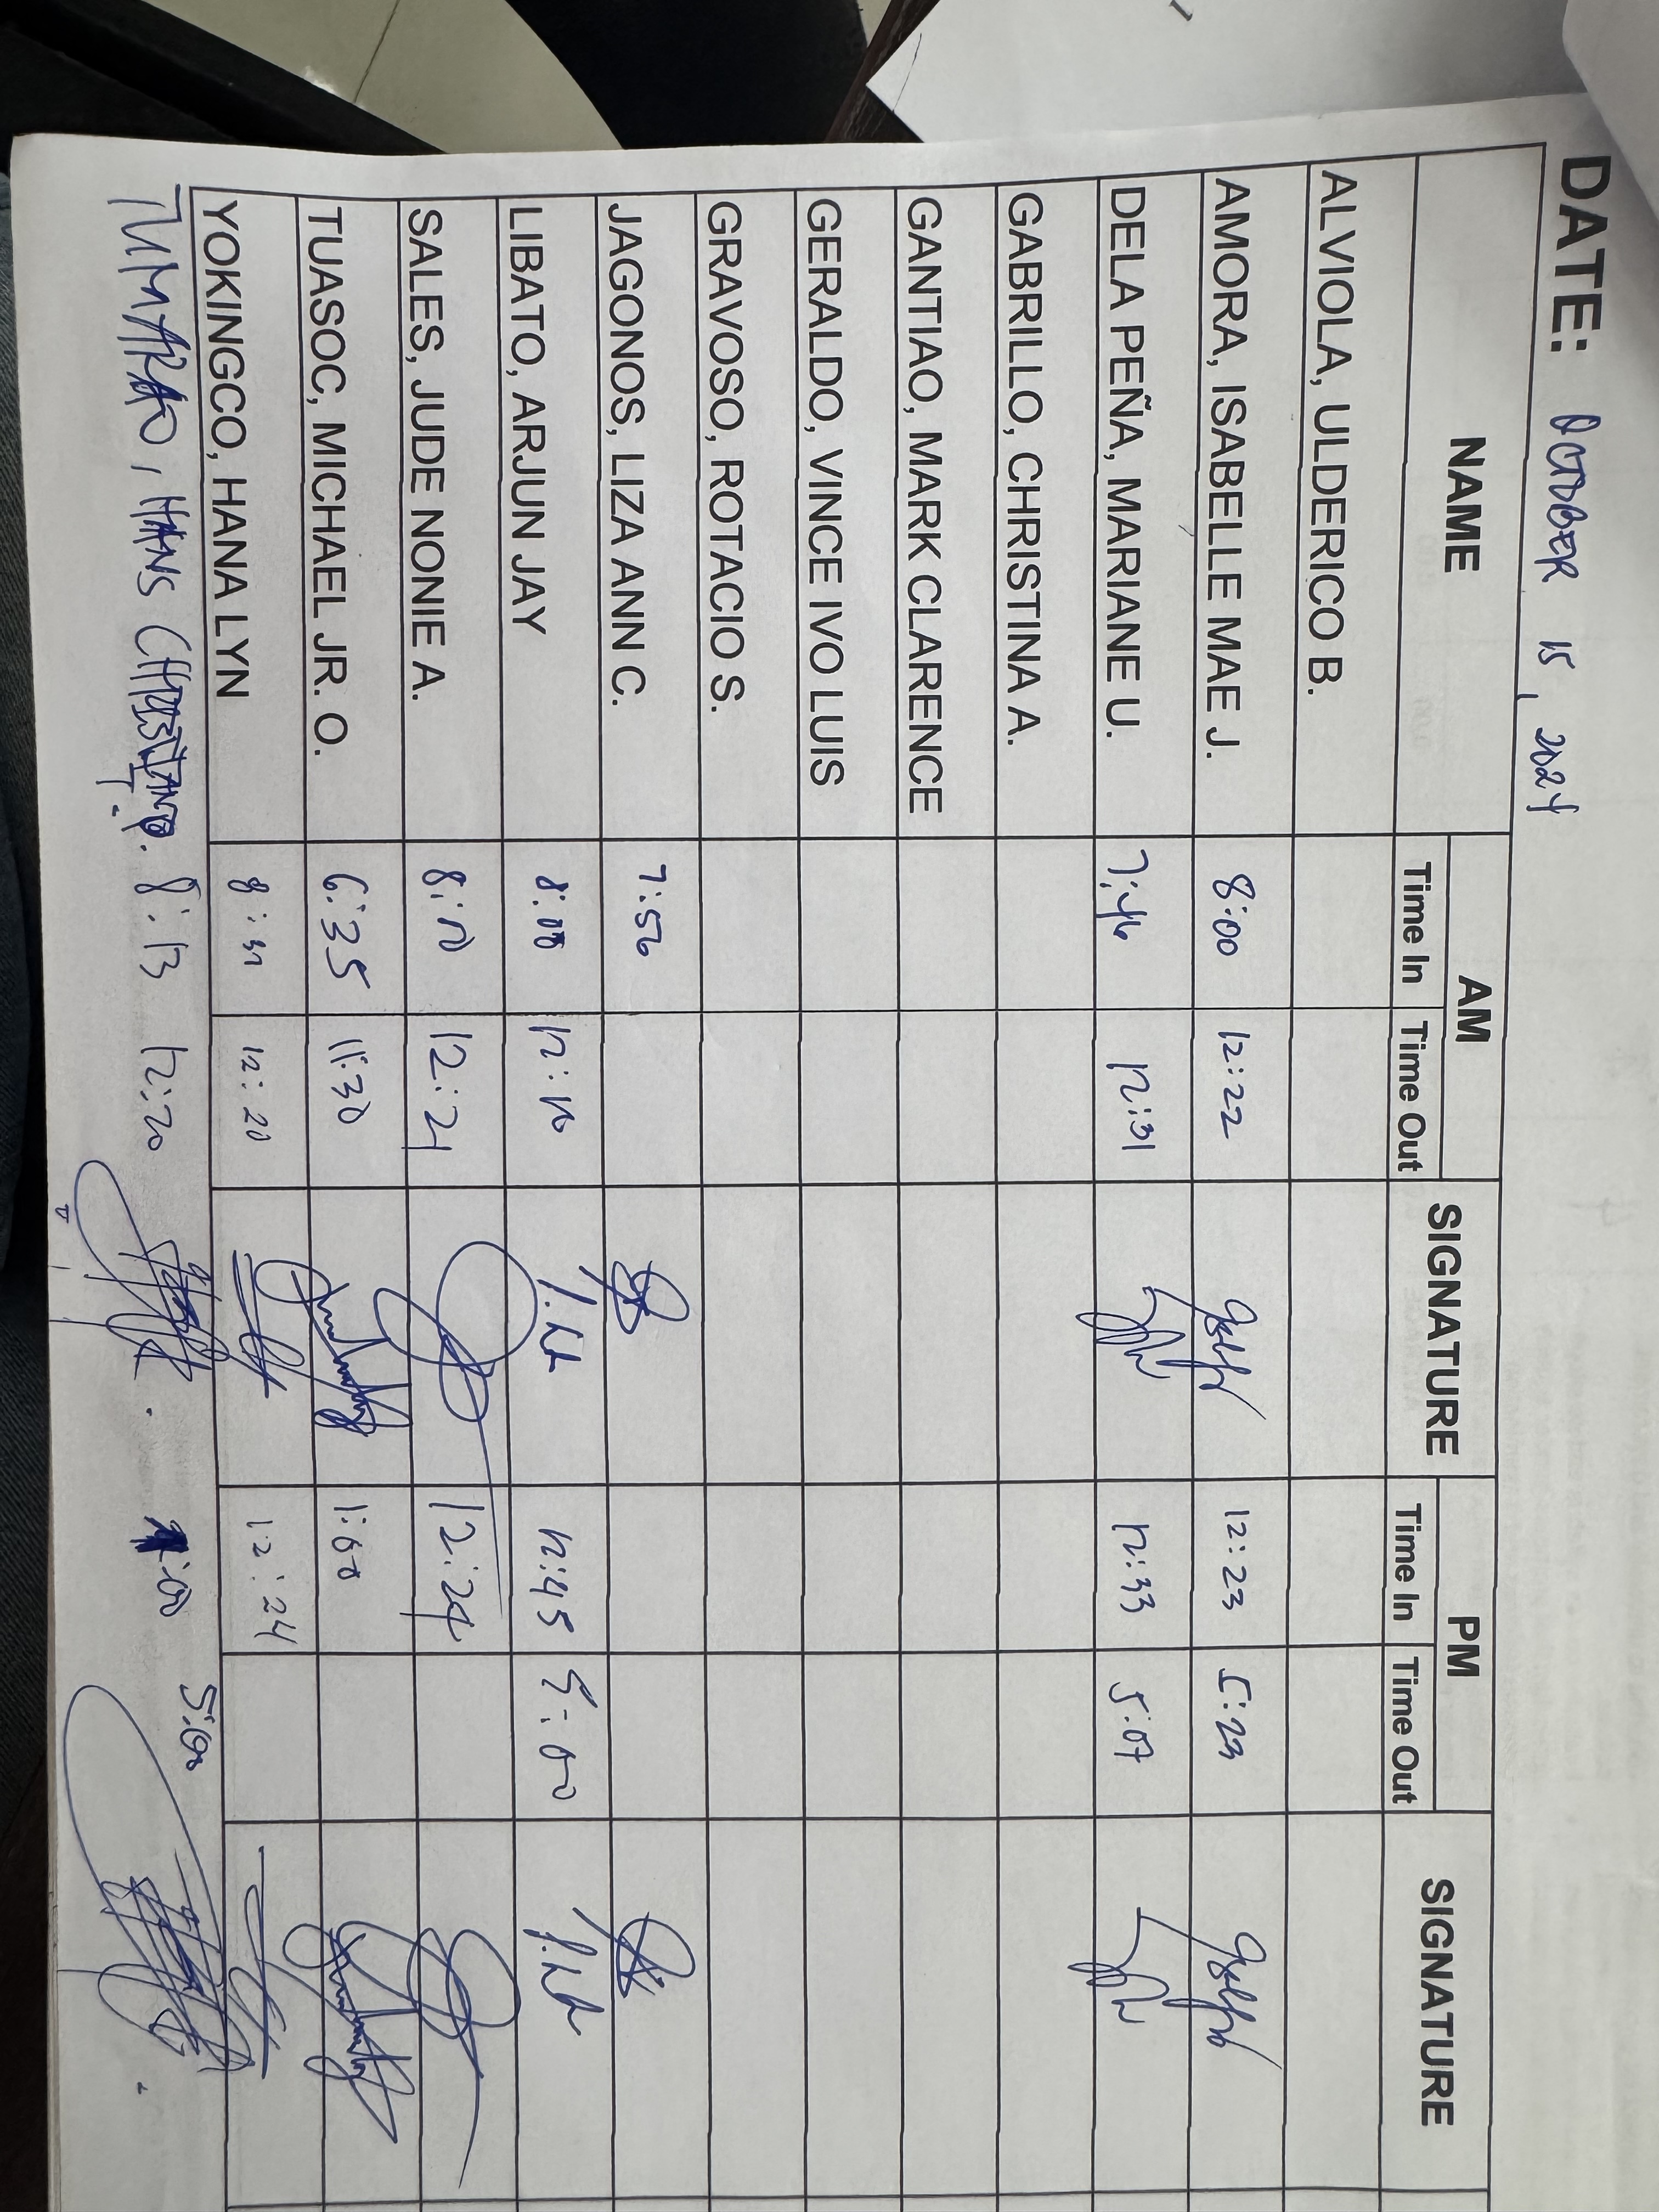 DATE: OCTOBER 15, 2024
NAME AM SIGNATURE PM SIGNATURE
Time In Time Out Time In Time Out
ALVIOLA, ULDERICO B.
AMORA, ISABELLE MAE J. 8:00 12:22 12:23 5:23
DELA PEÑA, MARIANE U. 7:46 12:31 12:33 5:07
GABRILLO, CHRISTINA A.
GANTIAO, MARK CLARENCE
GERALDO, VINCE IVO LUIS
GRAVOSO, ROTACIO S.
JAGONOS, LIZA ANN C. 7:56
LIBATO, ARJUN JAY 8:00 12:10 12:45 5:00
SALES, JUDE NONIE A. 8:10 12:21 12:24
TUASOC, MICHAEL JR. O. 6:35 11:30 1:00
YOKINGCO, HANA LYN 8:31 12:20 12:24
HANS 8:13 12:20 5:00